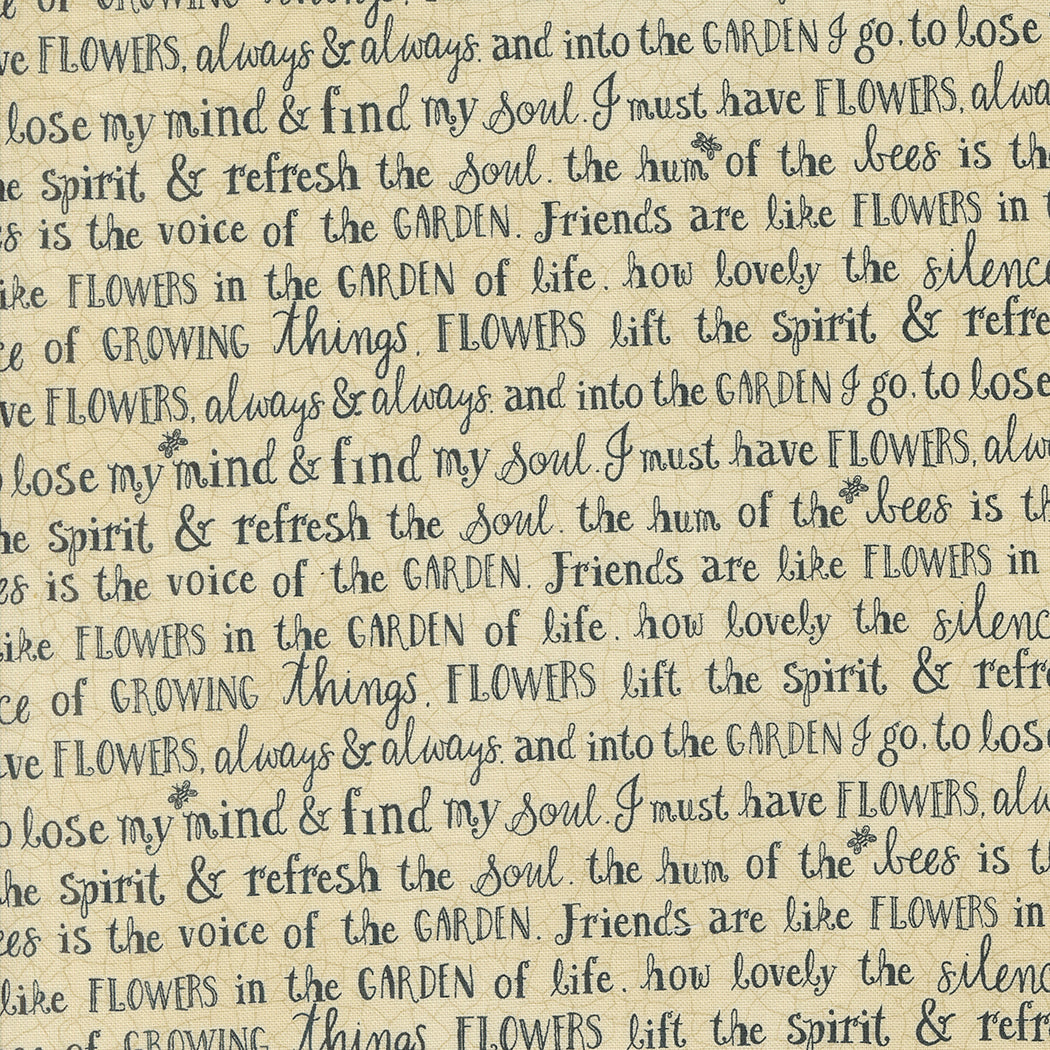 of GROWING things.
ve FLOWERS, always & always. and into the GARDEN I go, to lose
lose my mind & find my soul. I must have FLOWERS, alwa
he spirit & refresh the soul. the hum of the bees is th
es is the voice of the GARDEN. Friends are like FLOWERS in t
ike FLOWERS in the GARDEN of life. how lovely the silence
ce of GROWING things. FLOWERS lift the spirit & refre
ve FLOWERS, always & always. and into the GARDEN I go, to lose
o lose my mind & find my soul. I must have FLOWERS, alw
he spirit & refresh the soul. the hum of the bees is th
es is the voice of the GARDEN. Friends are like FLOWERS in
ike FLOWERS in the GARDEN of life. how lovely the silenc
ce of GROWING things. FLOWERS lift the spirit & refre
ave FLOWERS, always & always. and into the GARDEN I go, to lose
o lose my mind & find my soul. I must have FLOWERS, alw
the spirit & refresh the soul. the hum of the bees is t
ees is the voice of the GARDEN. Friends are like FLOWERS in
like FLOWERS in the GARDEN of life. how lovely the silenc
ce of GROWING things. FLOWERS lift the spirit & refr